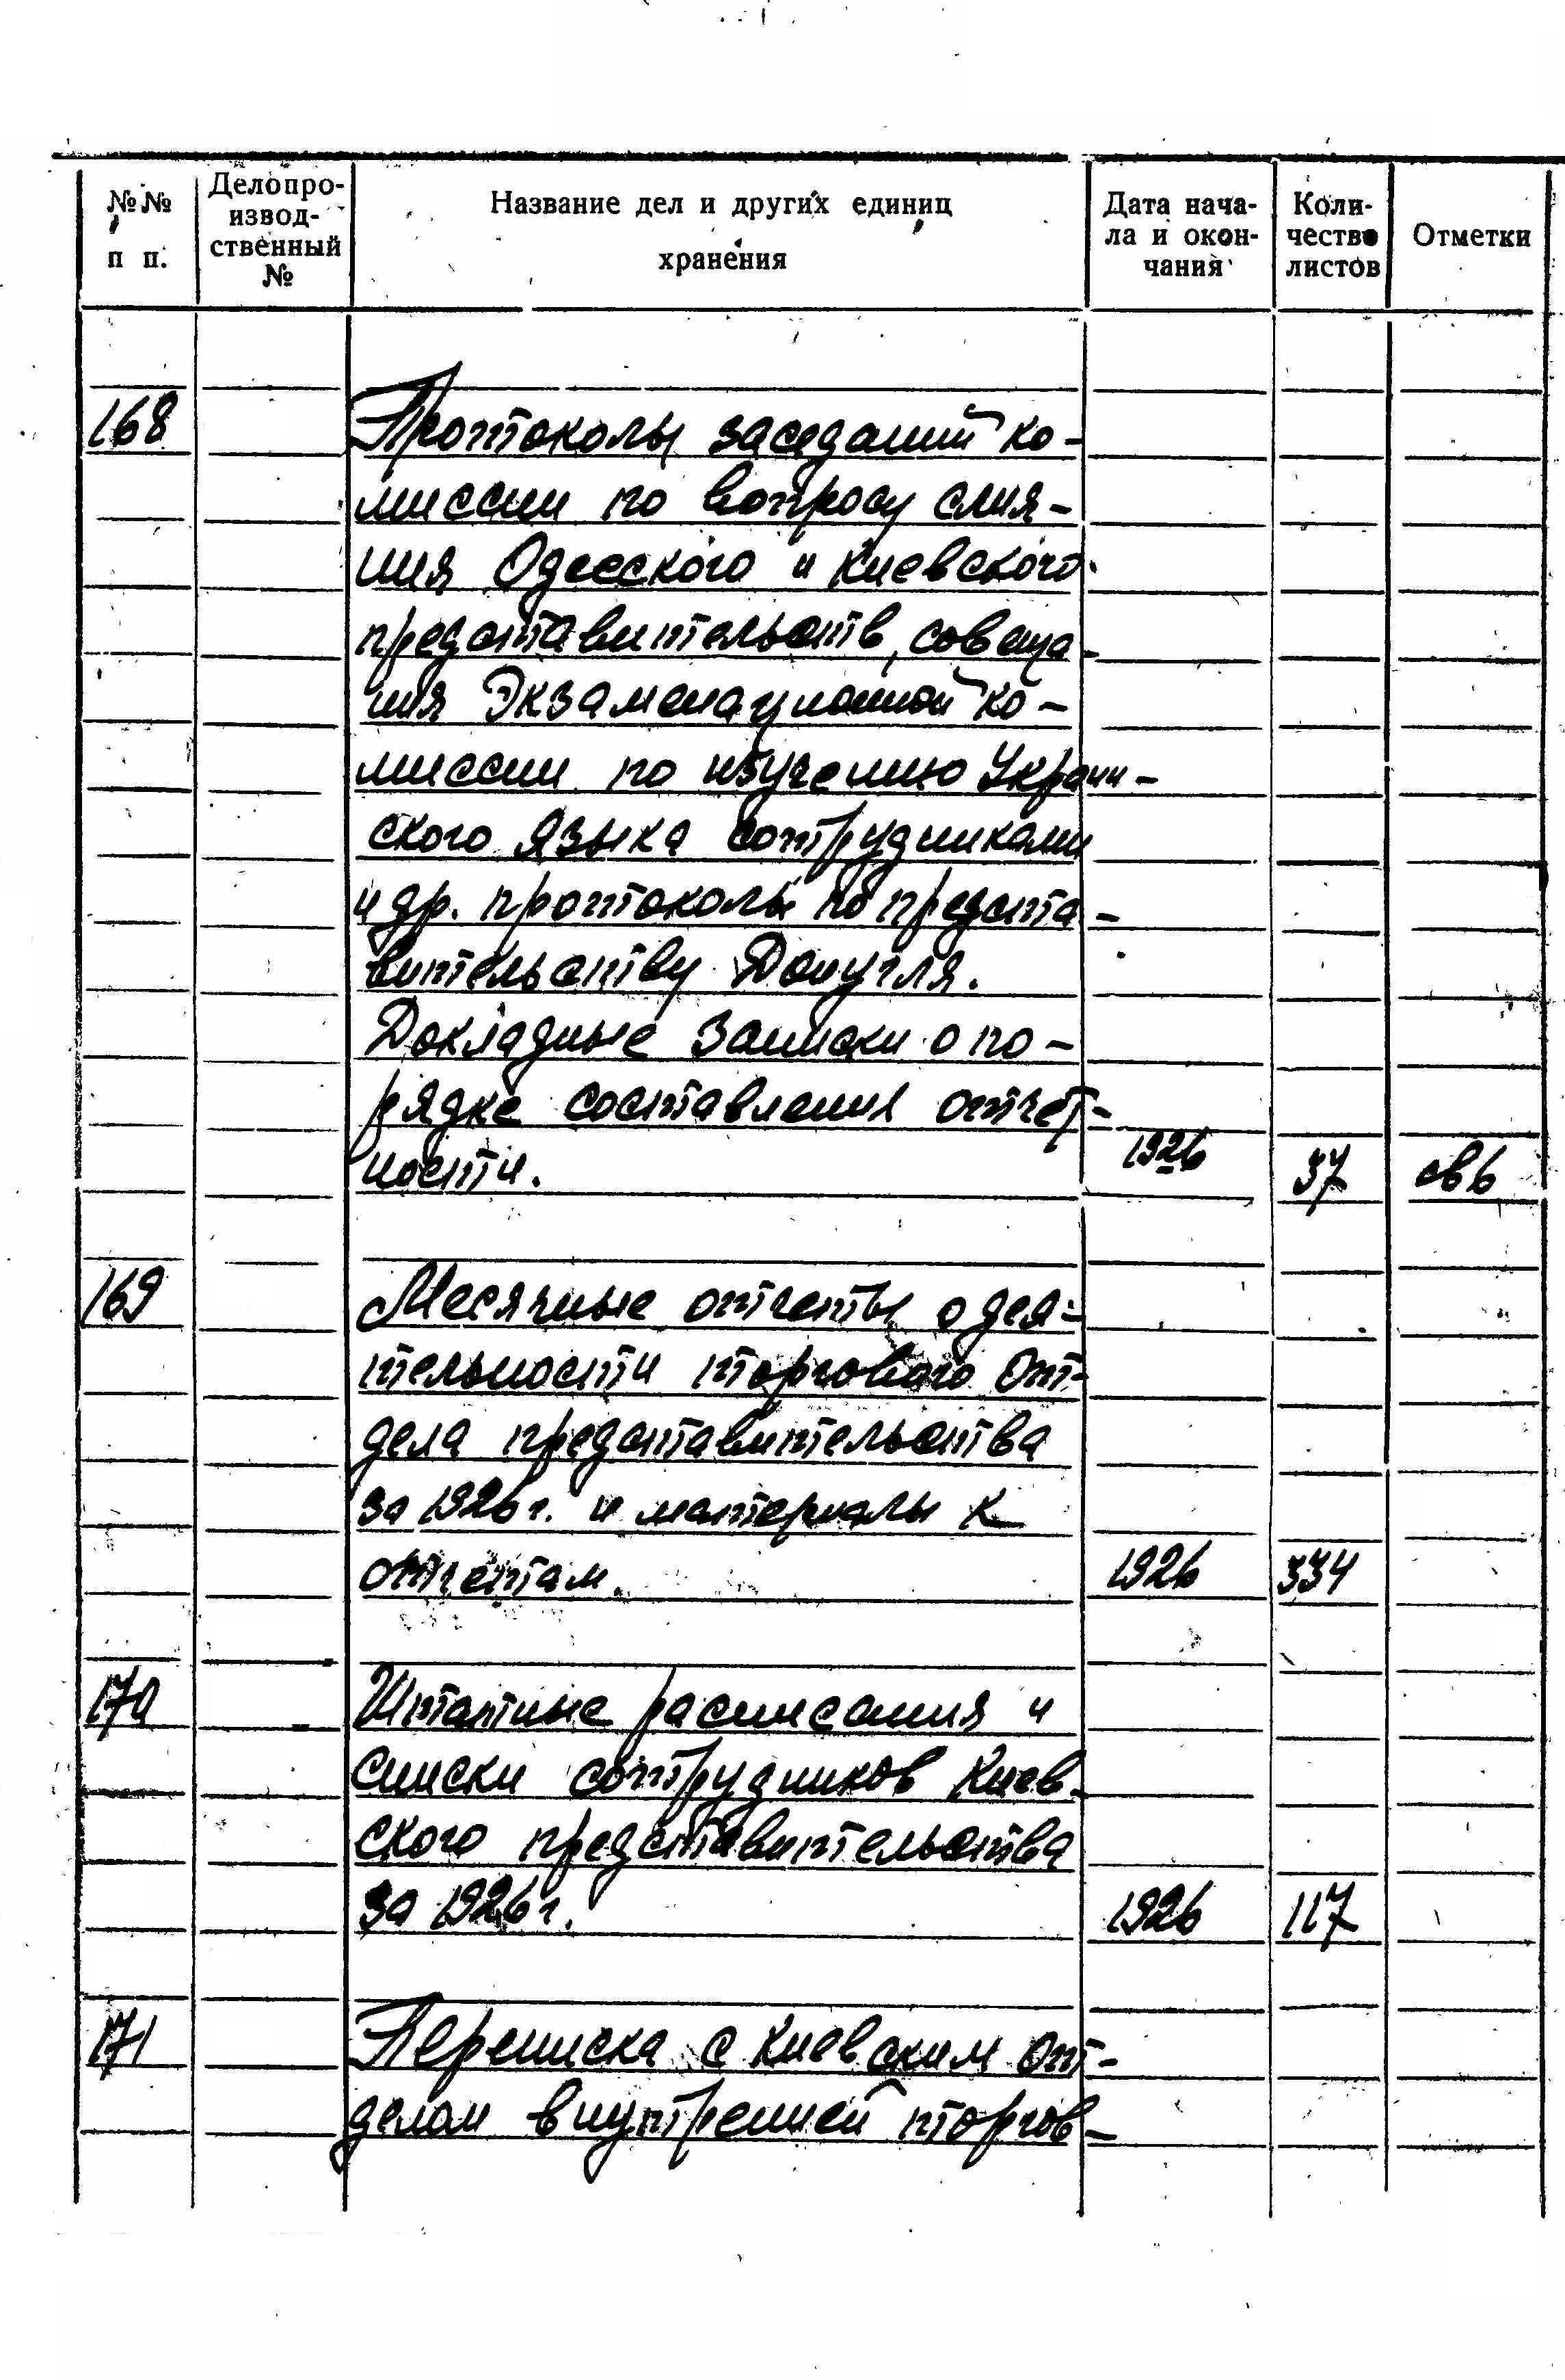 №№ п п.
Делопро-
извод-
ственный
№
Название дел и других единиц
хранения
Дата нача-
ла и окон-
чания
Коли-
чество
листов
Отметки
168 Протоколы заседаний ко-
миссии по вопросу слия-
ния Одесского и Киевского
представительств, совеща-
ния Экзаменационной ко-
миссии по изучению Украин-
ского языка сотрудниками
и др. протоколы по предста-
вительству Донугля.
Докладные записки о по-
рядке составления отчет-
ности. 1926 37
169 Месячные отчеты о дея-
тельности торгового от-
дела представительства
за 1926 г. и материалы к
отчетам. 1926 334
170 Штатные расписания и
списки сотрудников Киев-
ского представительства
за 1926 г. 1926 117
171 Переписка с Киевским от-
делом внутренней торгов-